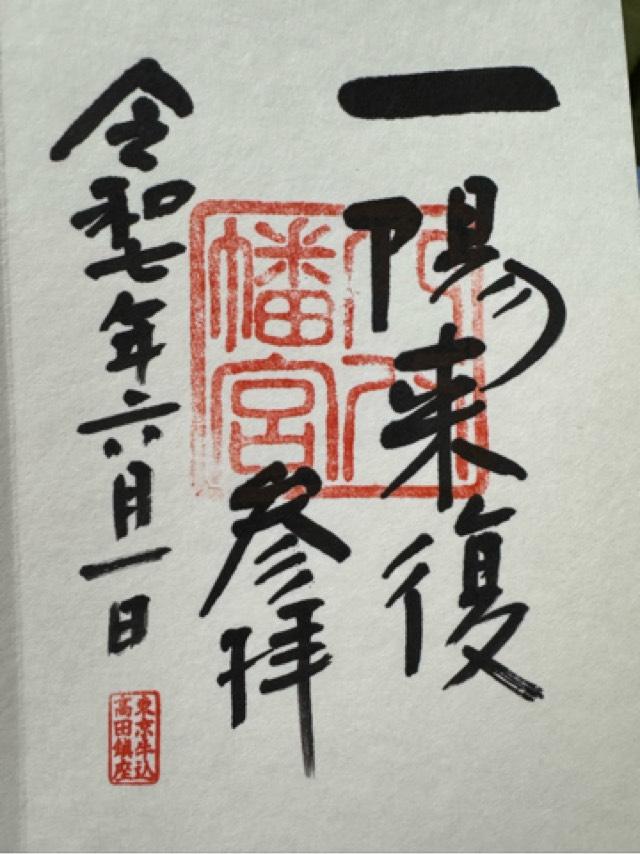 一陽来復
参拝
令和七年六月一日
幡宮
東京牛込
高田鎮座